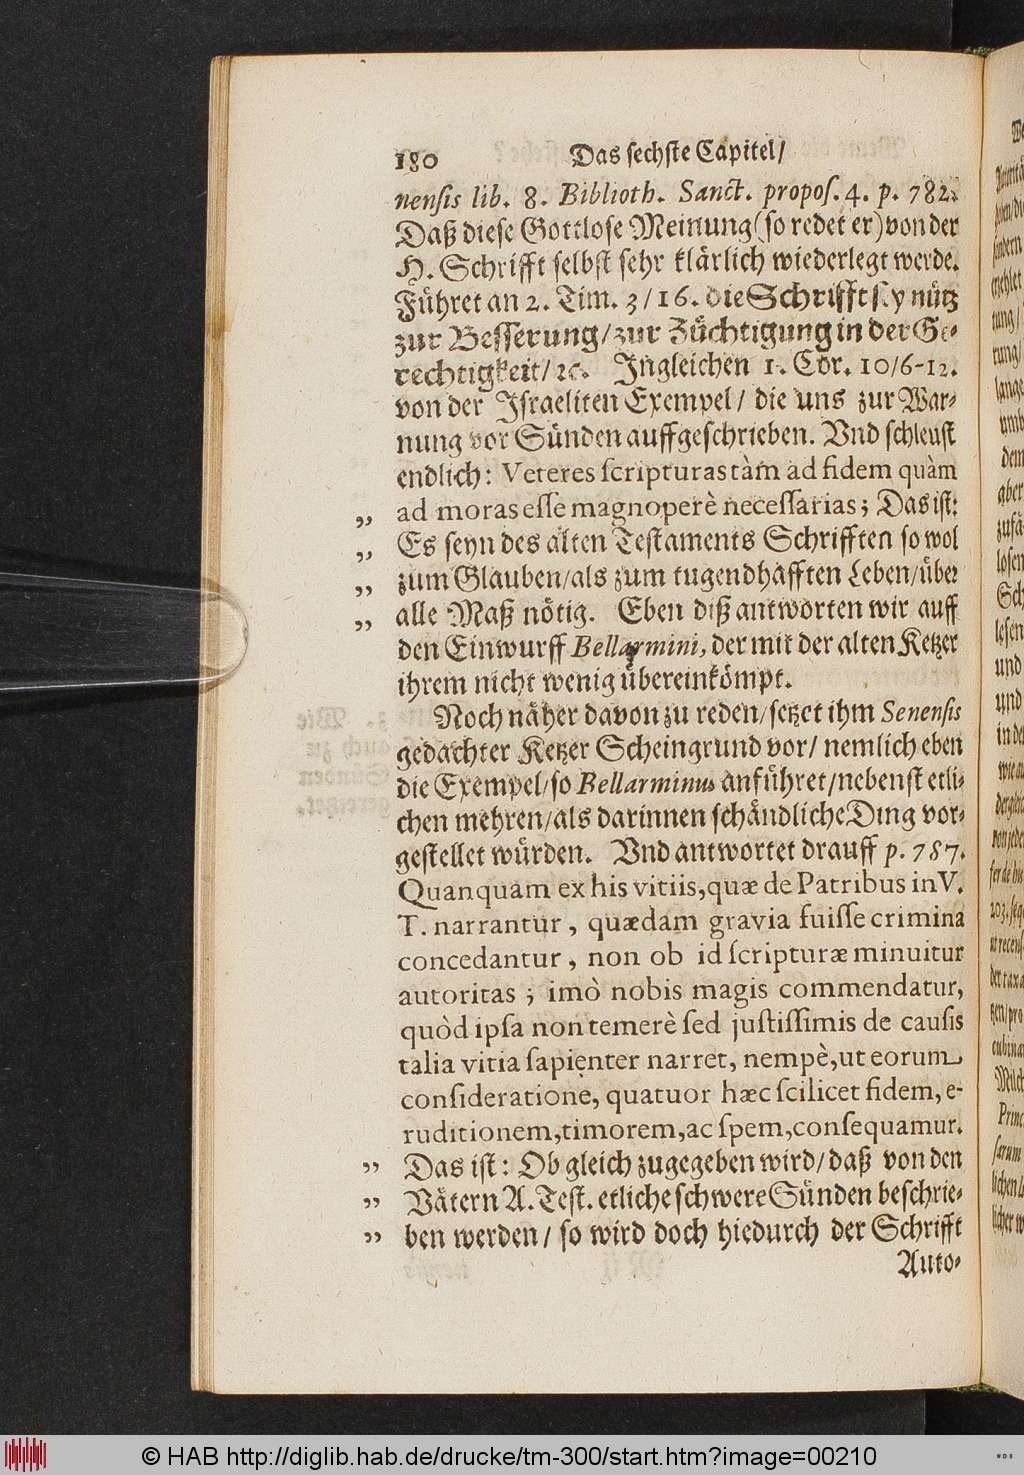 180 Das sechste Capitel/
nensis lib. 8. Biblioth. Sanct. propos. 4. p. 782.
Daß diese Gottlose Meinung (so redet er) von der
H. Schrifft selbst sehr klärlich wiederlegt werde.
Führet an 2. Tim. 3/16. die Schrifft sey nütz
zur Besserung/ zur Züchtigung in der Ge-
rechtigkeit/ ꝛc. Jngleichen 1. Cor. 10/6-12.
von der Jsraeliten Exempel/ die uns zur War-
nung vor Sünden auffgeschrieben. Vnd schleust
endlich: Veteres scripturas tàm ad fidem quàm
„ ad moras esse magnoperè necessarias; Das ist:
„ Es seyn des alten Testaments Schrifften so wol
„ zum Glauben/ als zum tugendhafften Leben/ über
„ alle Maß nötig. Eben diß antworten wir auff
den Einwurff Bellarmini, der mit der alten Ketzer
ihrem nicht wenig übereinkömpt.
Noch näher davon zu reden/ setzet ihm Senensis
gedachter Ketzer Scheingrund vor/ nemlich eben
die Exempel/ so Bellarminus anführet/ nebenst etli-
chen mehren/ als darinnen schändliche Ding vor-
gestellet würden. Vnd antwortet drauff p. 787.
Quanquam ex his vitiis, quæ de Patribus in V.
T. narrantur, quædam gravia fuisse crimina
concedantur, non ob id scripturæ minuitur
autoritas; imò nobis magis commendatur,
quòd ipsa non temerè sed justissimis de causis
talia vitia sapienter narret, nempè, ut eorum
consideratione, quatuor hæc scilicet fidem, e-
ruditionem, timorem, ac spem, consequamur.
„ Das ist: Ob gleich zugegeben wird/ daß von den
„ Vätern A. Test. etliche schwere Sünden beschrie-
„ ben werden/ so wird doch hiedurch der Schrifft
Auto-
© HAB http://diglib.hab.de/drucke/tm-300/start.htm?image=00210